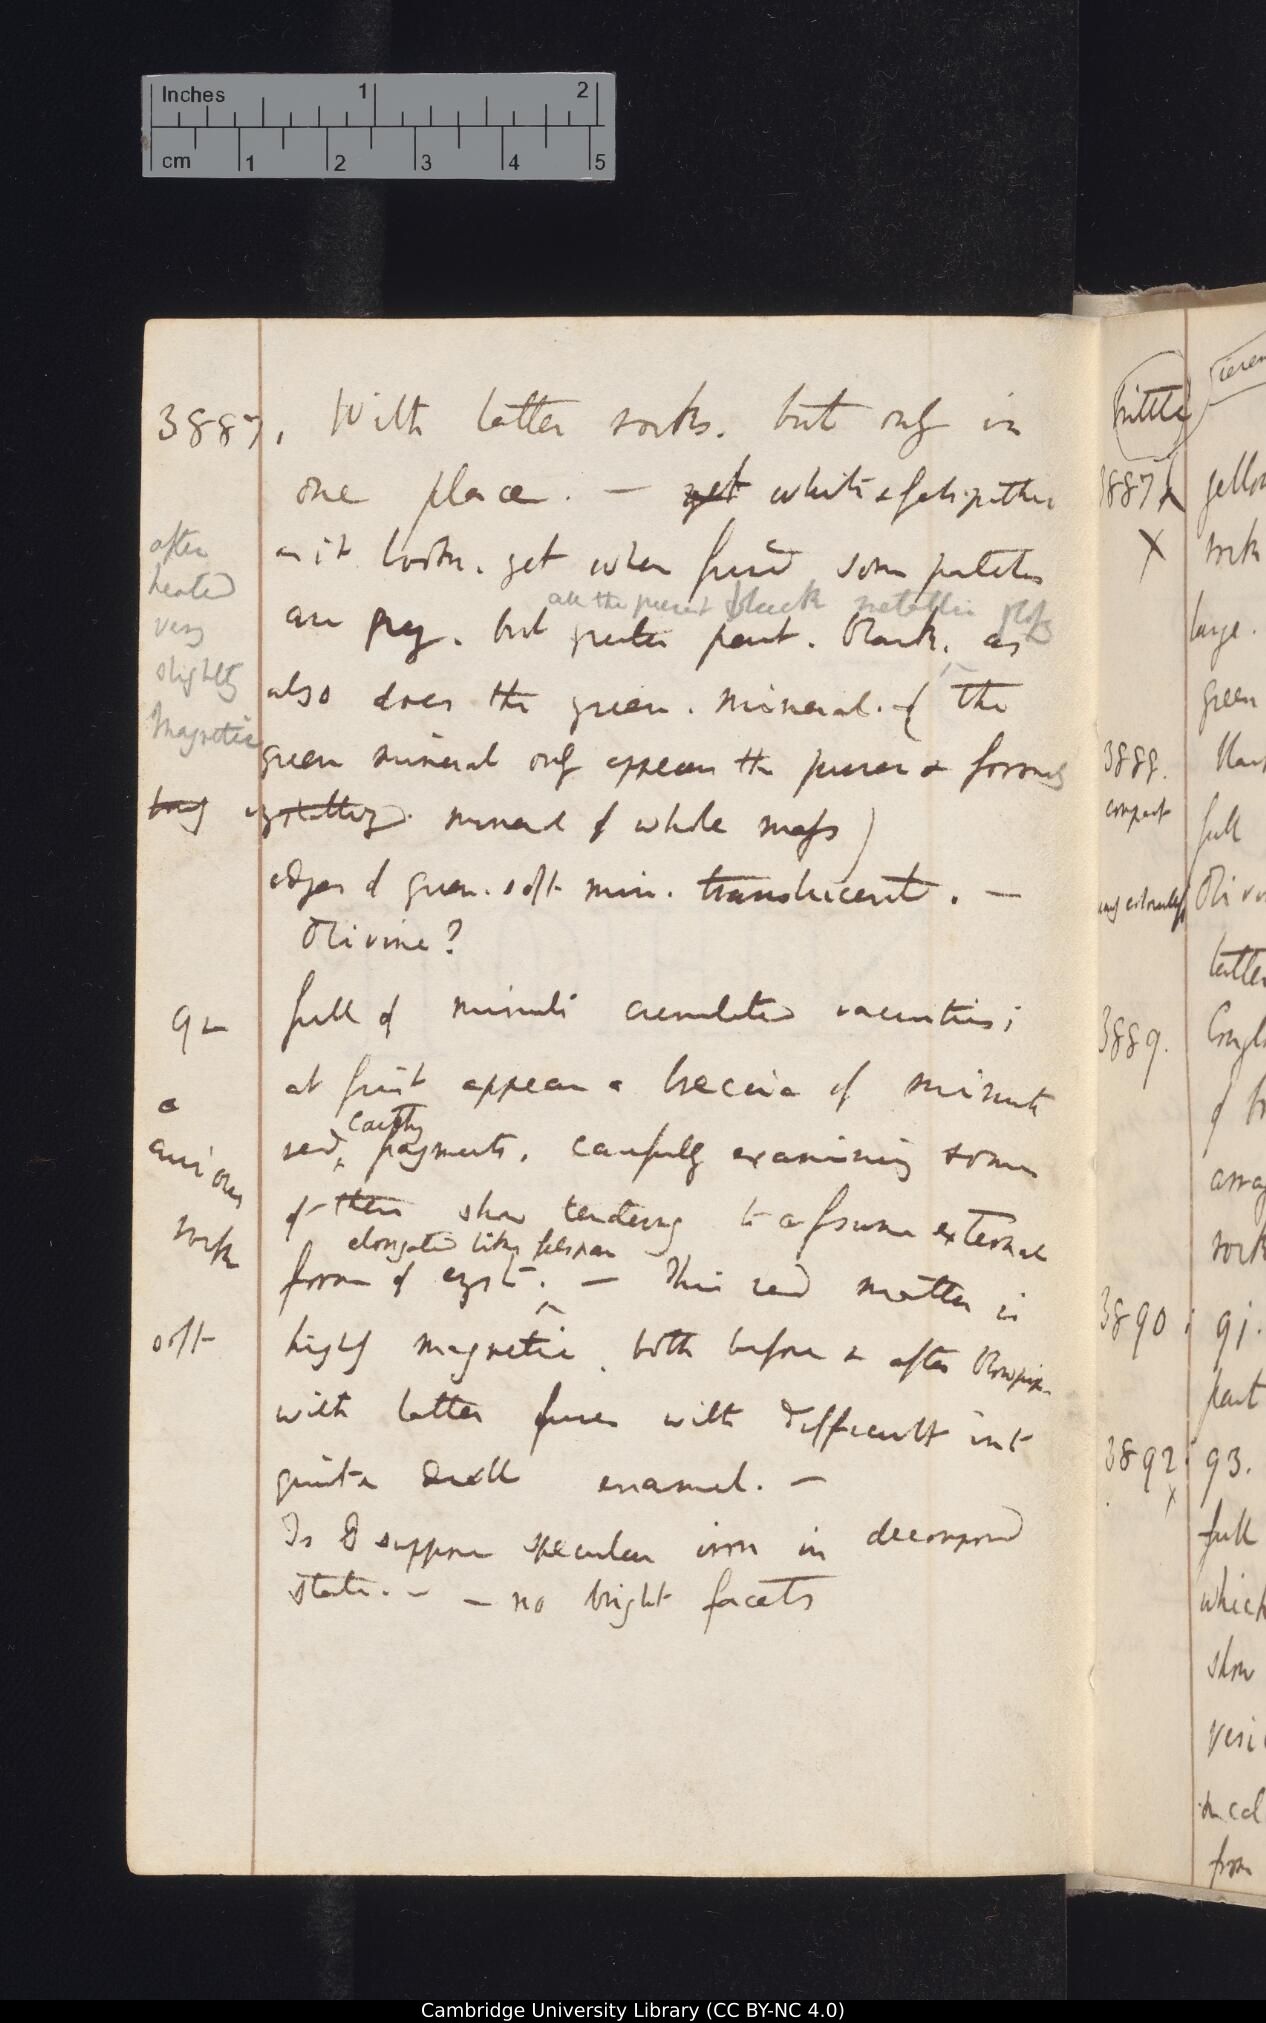 Inches 1 2
cm 1 2 3 4 5
3887, With latter rocks. but only in
one place. — yet white &
as it looks. yet when fused some patches
after
heated
very
slightly
Magnetic
black metallic
are grey. but greater part. black. as
also does the green. mineral. (the
green mineral only appears the purer &
mineral of whole mass)
edges of green. soft min. translucent. —
Olivine?
full of minute crenulated vacuities;
at first appear a breccia of minute
earthy
red fragments. carefully examining some
of them show tendency to assume external
elongated like felspar
form of cryst. — This red matter is
a
curious
rock
soft
highly magnetic, both before & after Blowpipe
with latter fuses with difficult int
quite dull enamel. —
Is I suppose specular iron in decomposed
state. — — no bright facets
brittle
3887
X
rock
large.
green
3888.
compact
full
Olivi
latter
3889.
of
rock
3890; 91.
part
3892; 93.
X
full
which
show
from
Cambridge University Library (CC BY-NC 4.0)